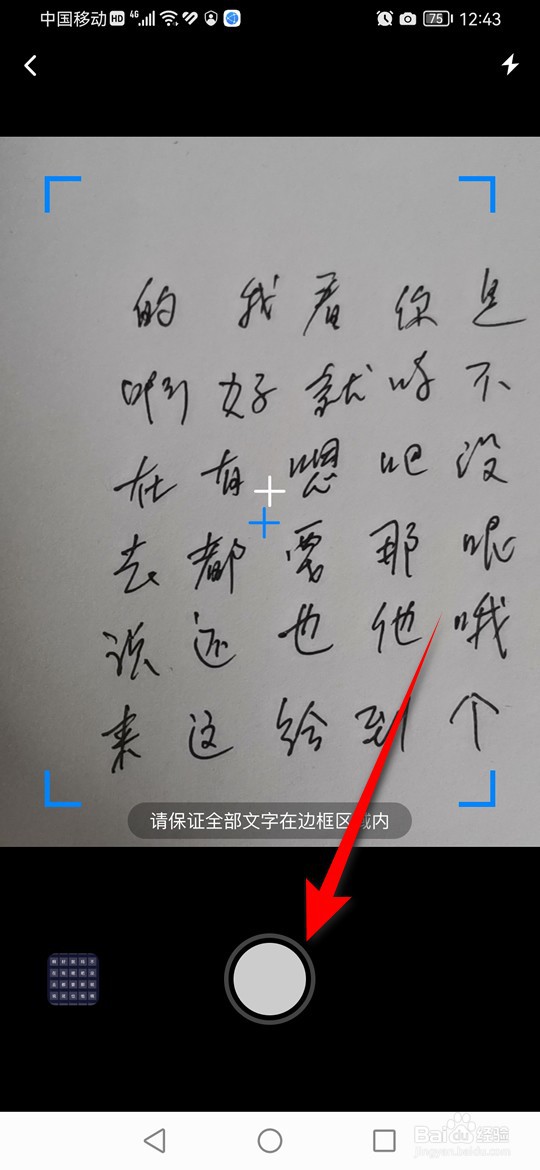 中国移动 HD 4G 75 12:43
的 我 看 你 是
啊 好 就 时 不
在 有 嗯 吧 没
去 都 要 那 呢
说 还 也 他 哦
来 这 给 到 个
请保证全部文字在边框区域内
Baidu经验
jingyan.baidu.com